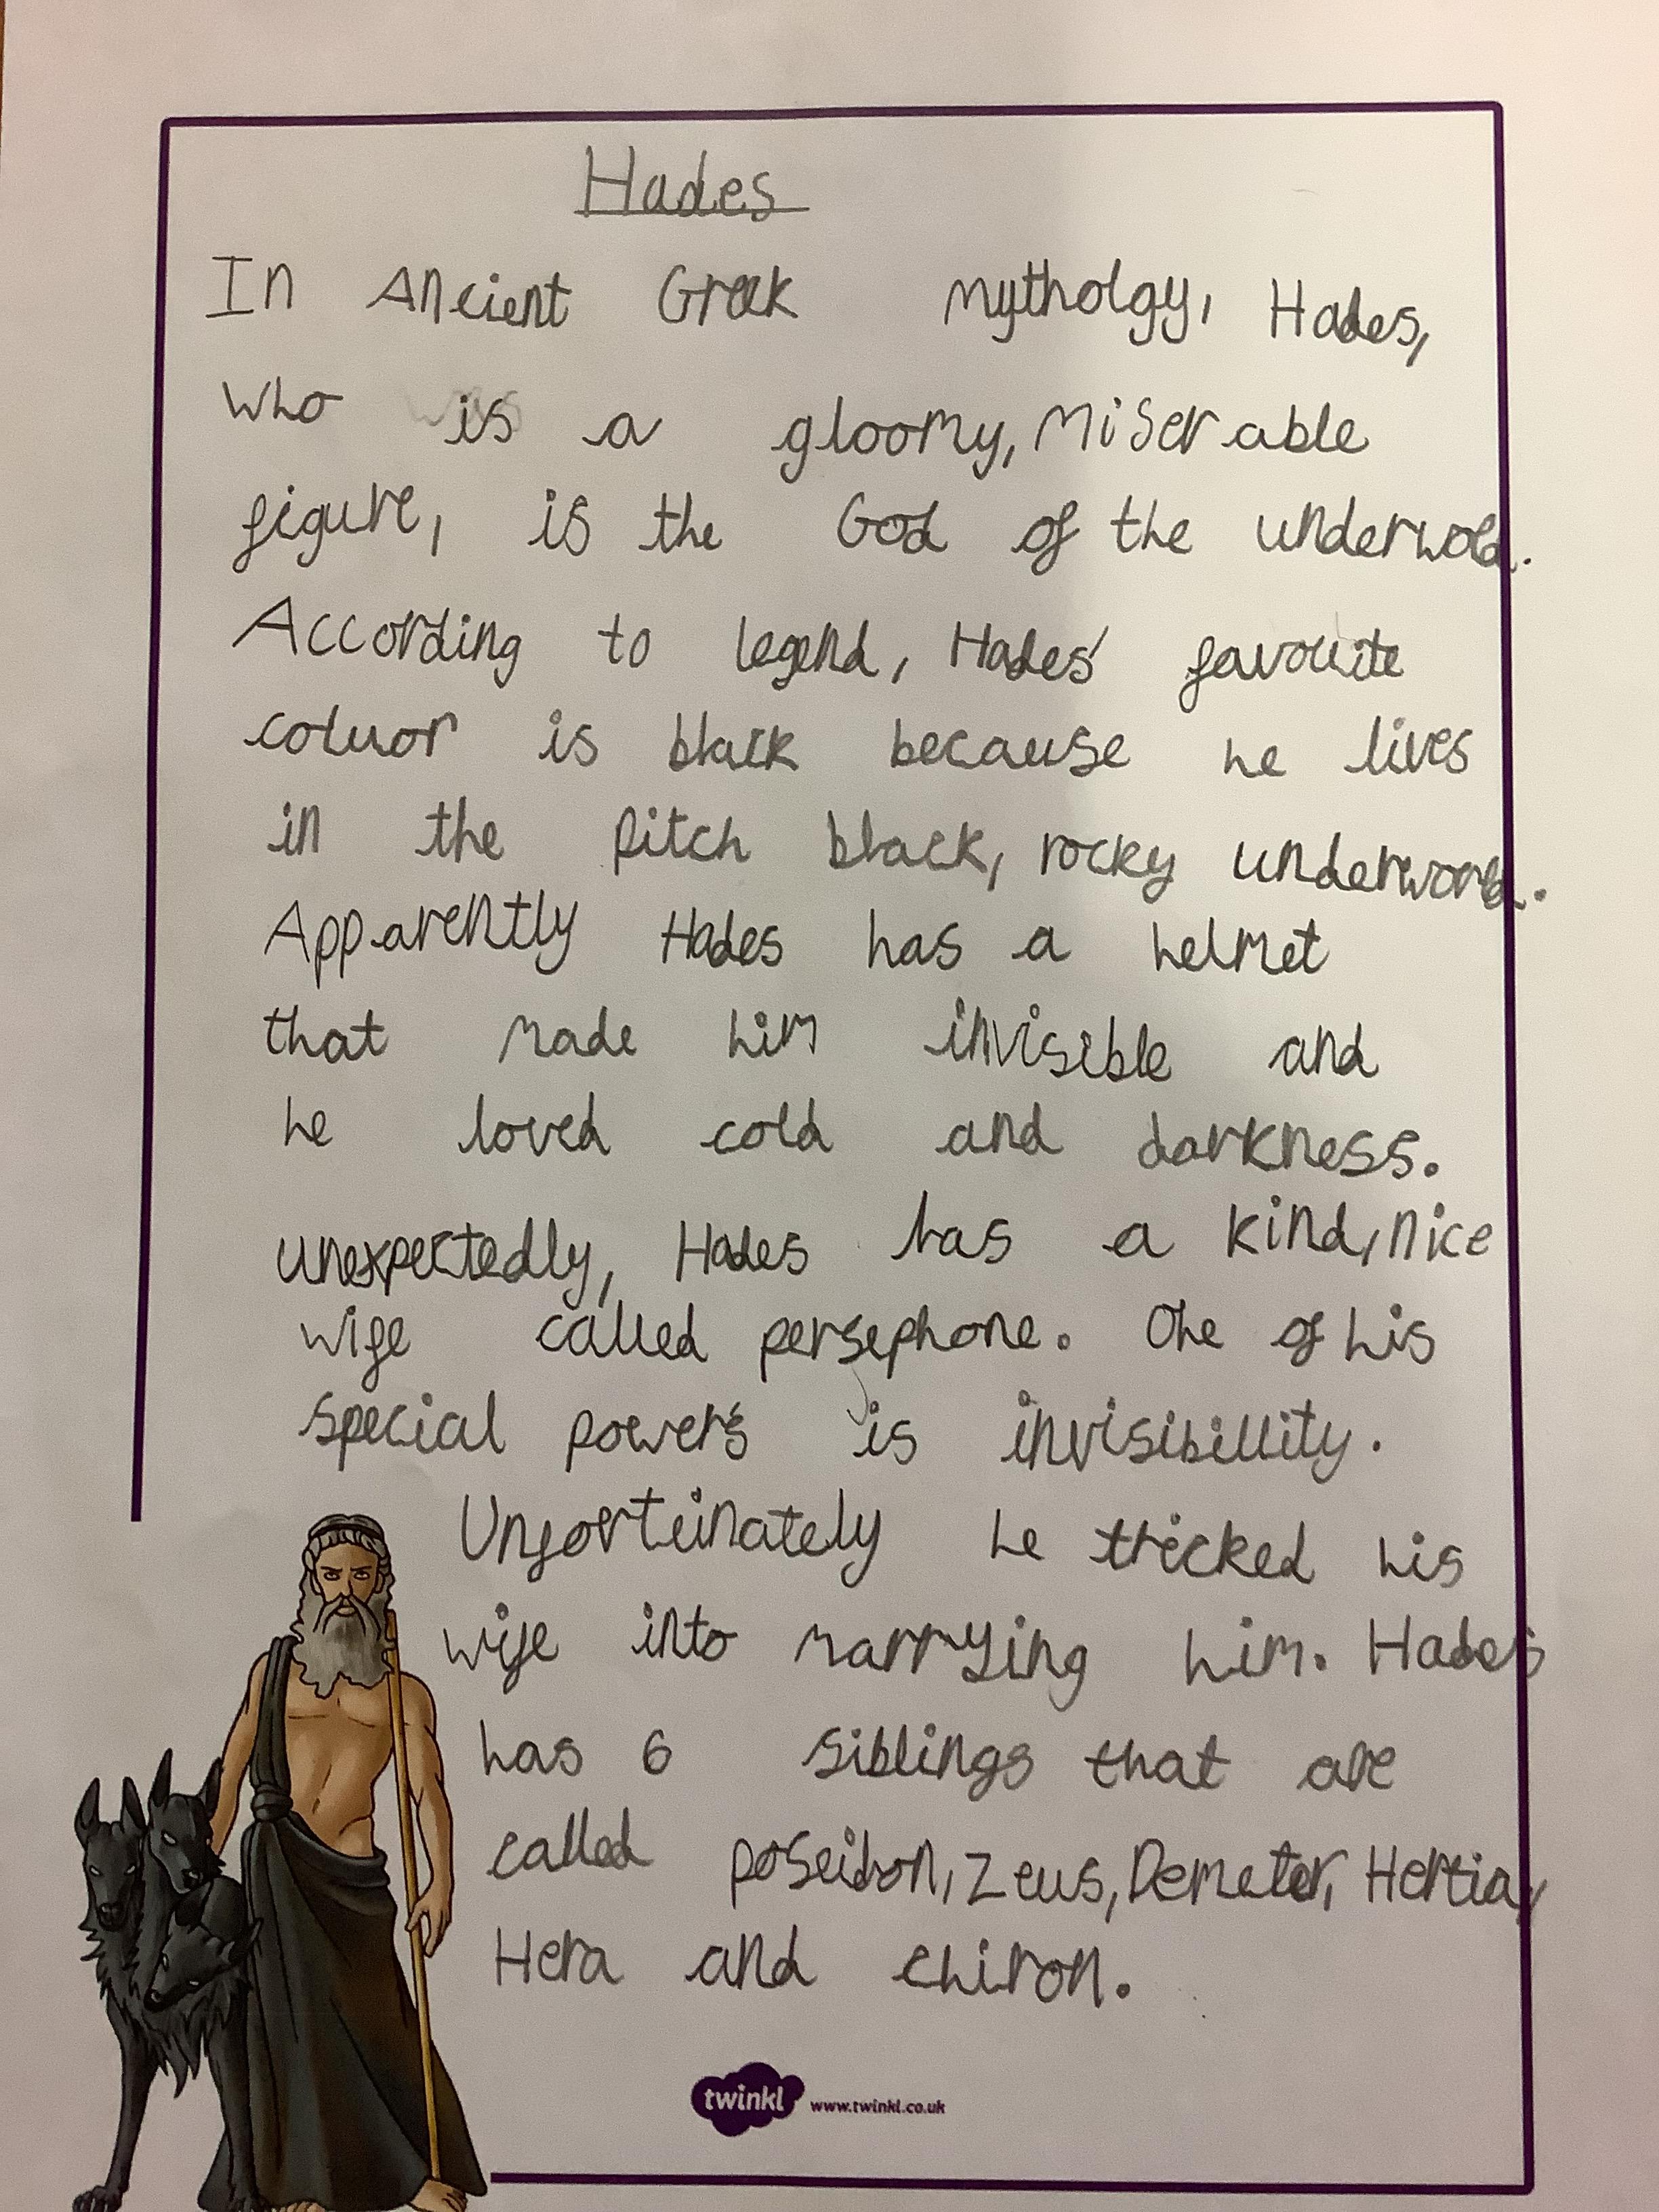 Hades
In Ancient Greek mytholgy, Hades,
who is a gloomy, miserable
figure, is the God of the underwold.
According to legend, Hades' favouite
coluor is black because he lives
in the pitch black, rocky underword.
Apparently Hades has a helmet
that made him invisible and
he loved cold and darkness.
unexpectedly, Hades has a kind, nice
wife called persephone. One of his
special powers is invisibillity.
Unfortuinately he tricked his
wife into marrying him. Hades
has 6 siblings that are
called poseidon, Zeus, Demeter, Hertia,
Hera and chiron.
twinkl www.twinkl.co.uk